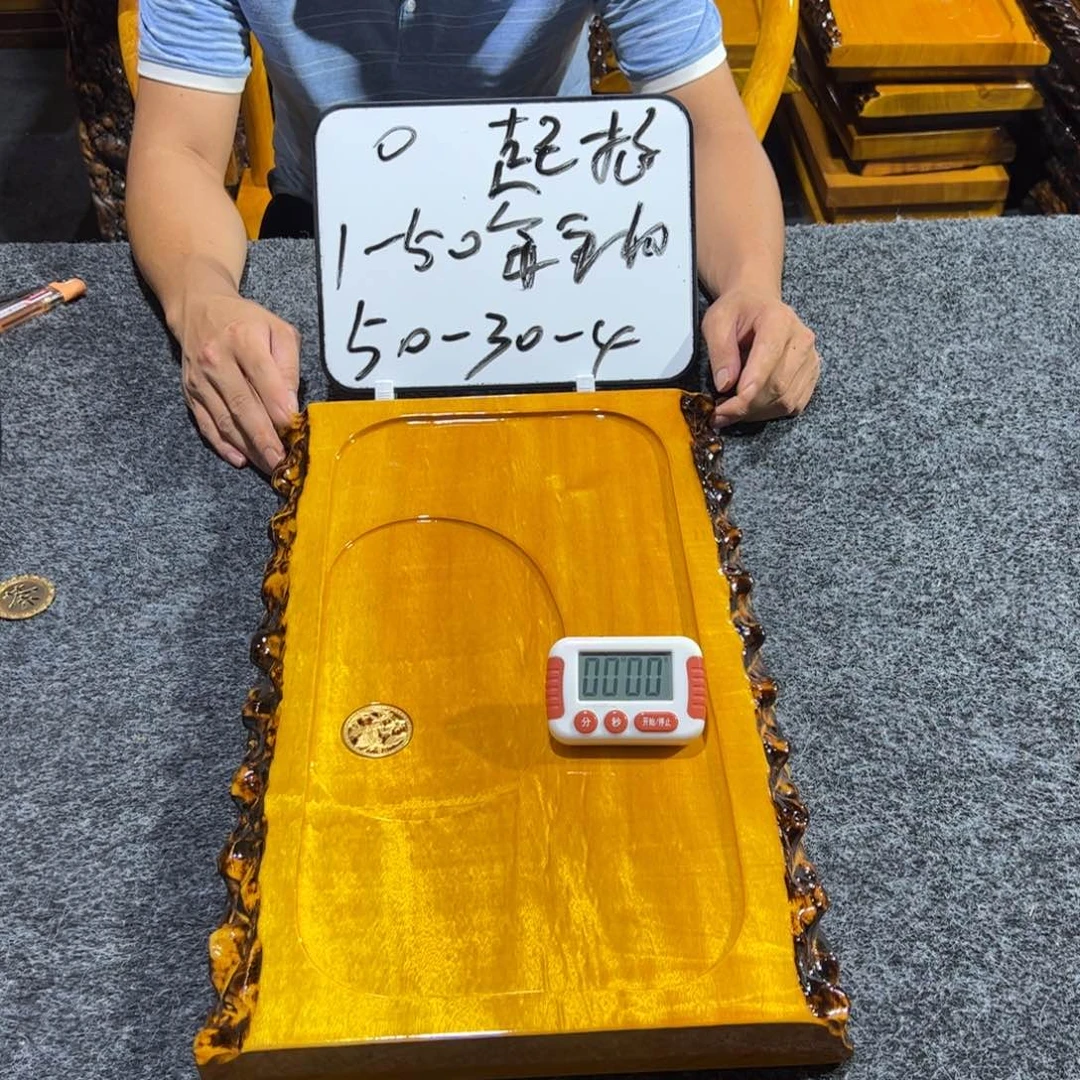 0 起拍
1-50
50-30-4
00:00
分 秒 开始/停止